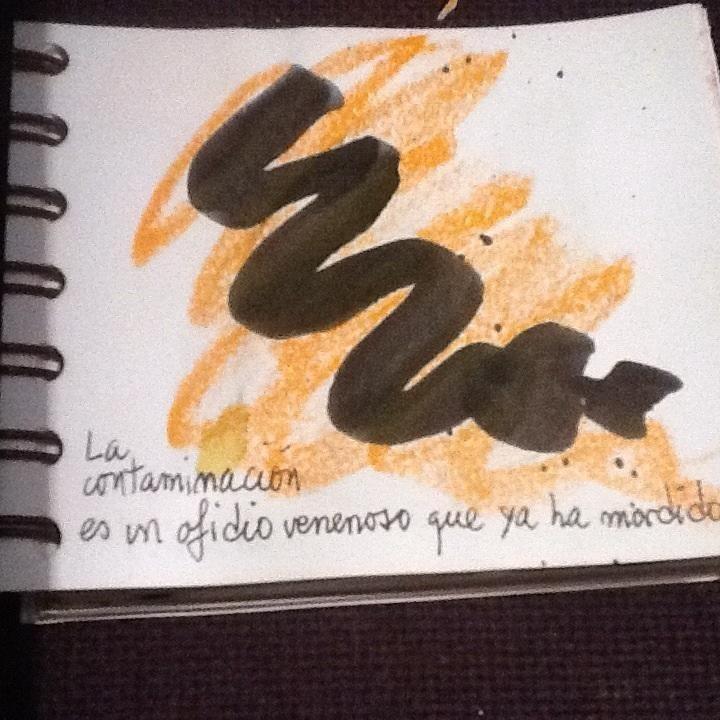 La
contaminación
es un ofidio venenoso que ya ha mordido